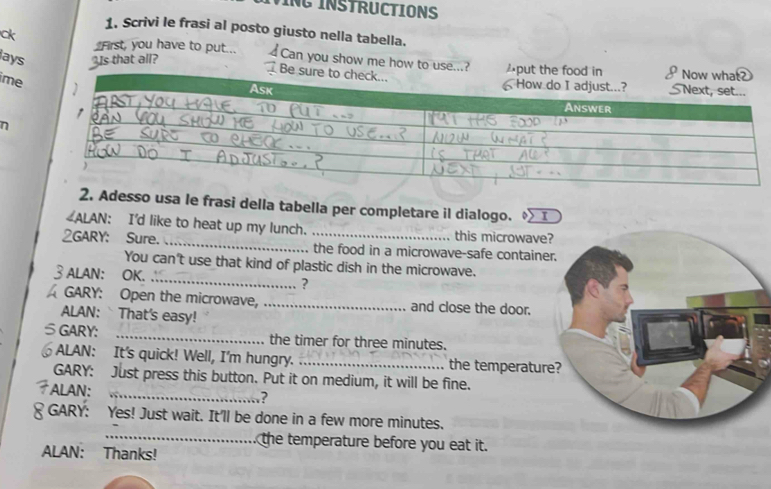 GIVING INSTRUCTIONS
ck
lays
ime
n
1. Scrivi le frasi al posto giusto nella tabella.
2 First, you have to put... 1 Can you show me how to use...? 4 put the food in 8 Now what?
3 Is that all? Be sure to check... 6 How do I adjust...? 5 Next, set...
ASK ANSWER
FIRST, YOU HAVE TO PUT... PUT THE FOOD IN
CAN YOU SHOW ME HOW TO USE...? NOW WHAT?
BE SURE TO CHECK... IS THAT ALL?
HOW DO I ADJUST...? NEXT, SET...
2. Adesso usa le frasi della tabella per completare il dialogo. I
ALAN: I'd like to heat up my lunch. ........ this microwave?
2 GARY: Sure. ........ the food in a microwave-safe container.
You can't use that kind of plastic dish in the microwave.
3 ALAN: OK. ........ ?
4 GARY: Open the microwave, ........ and close the door.
ALAN: That's easy!
5 GARY: ........ the timer for three minutes.
6 ALAN: It's quick! Well, I'm hungry. ........ the temperature?
GARY: Just press this button. Put it on medium, it will be fine.
7 ALAN: ........?
8 GARY: Yes! Just wait. It'll be done in a few more minutes.
........ the temperature before you eat it.
ALAN: Thanks!